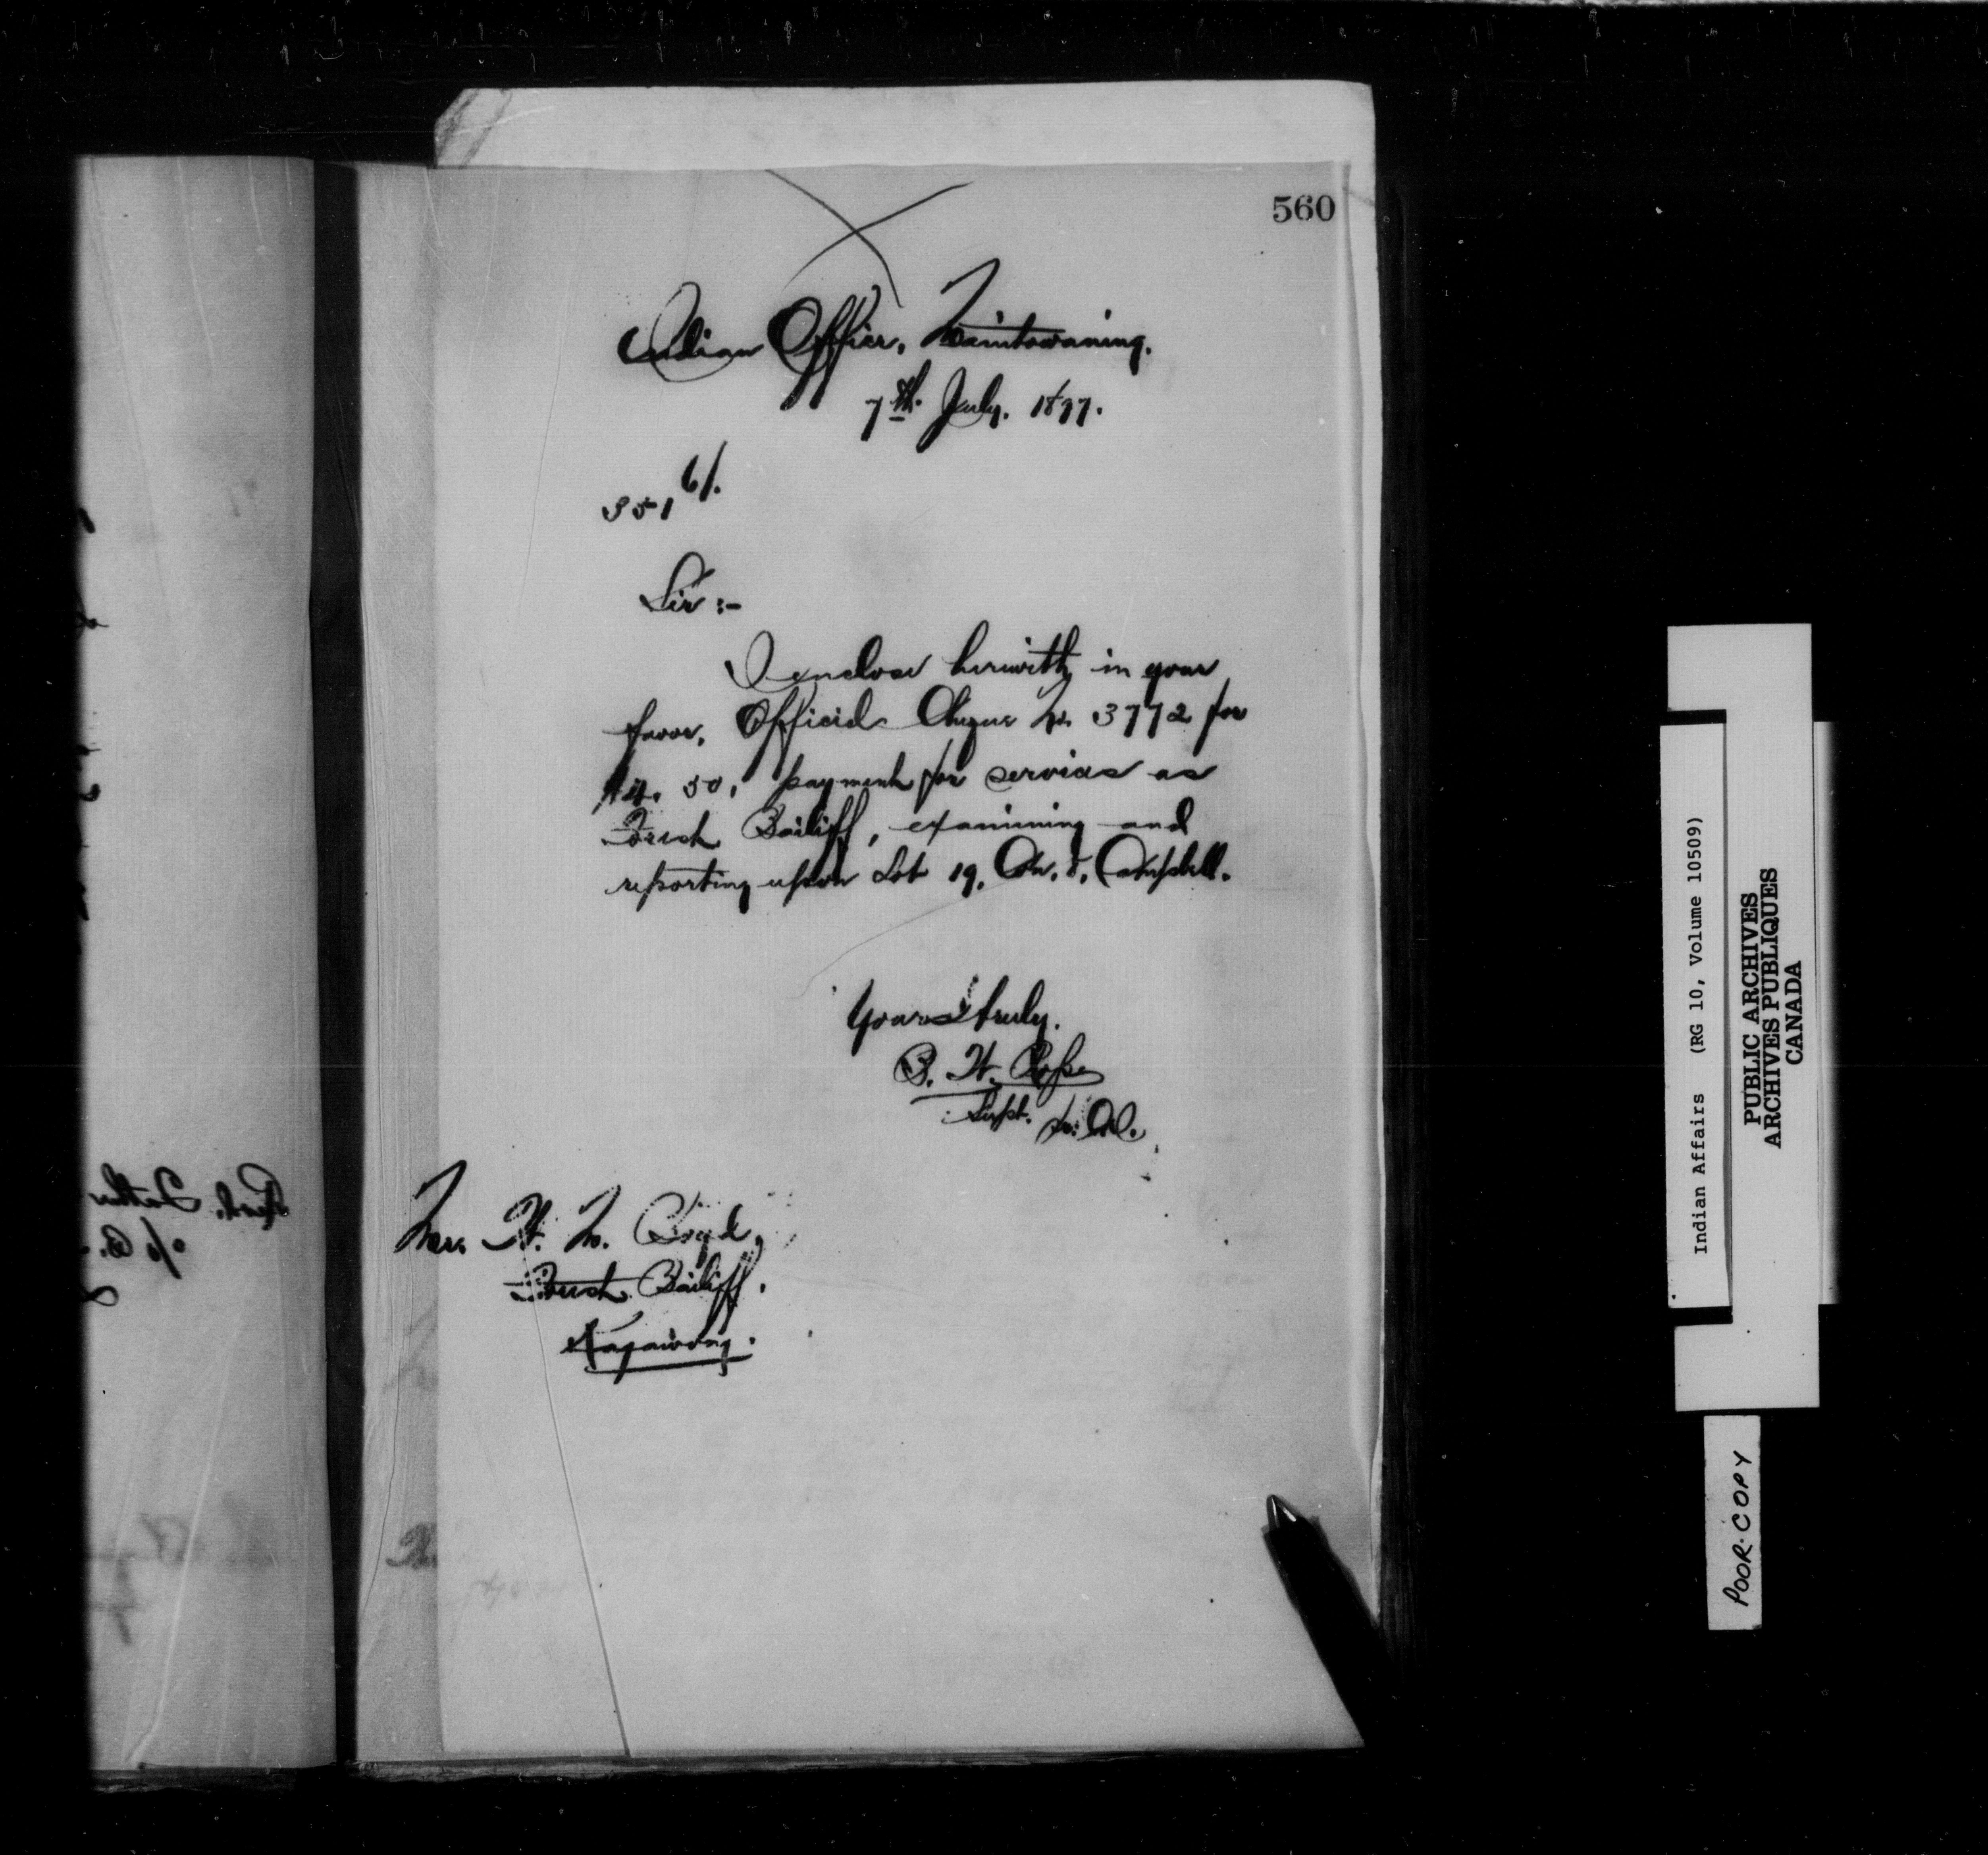 560
Indian Office, Manitowaning.
7th. July. 1897.
351 6/.
Sir :-
I enclose herewith in your
favor, Official Cheque No. 3772 for
$4. 50, payment for services as
Forest Bailiff, examining and
reporting upon Lot 19, Con. 8, Campbell.
Yours truly.
B. W. Ross
Supt.
Mr. H. M. Boyd,
Forest Bailiff.
Kagawong.
Indian Affairs (RG 10, Volume 10509)
PUBLIC ARCHIVES
ARCHIVES PUBLIQUES
CANADA
POOR COPY